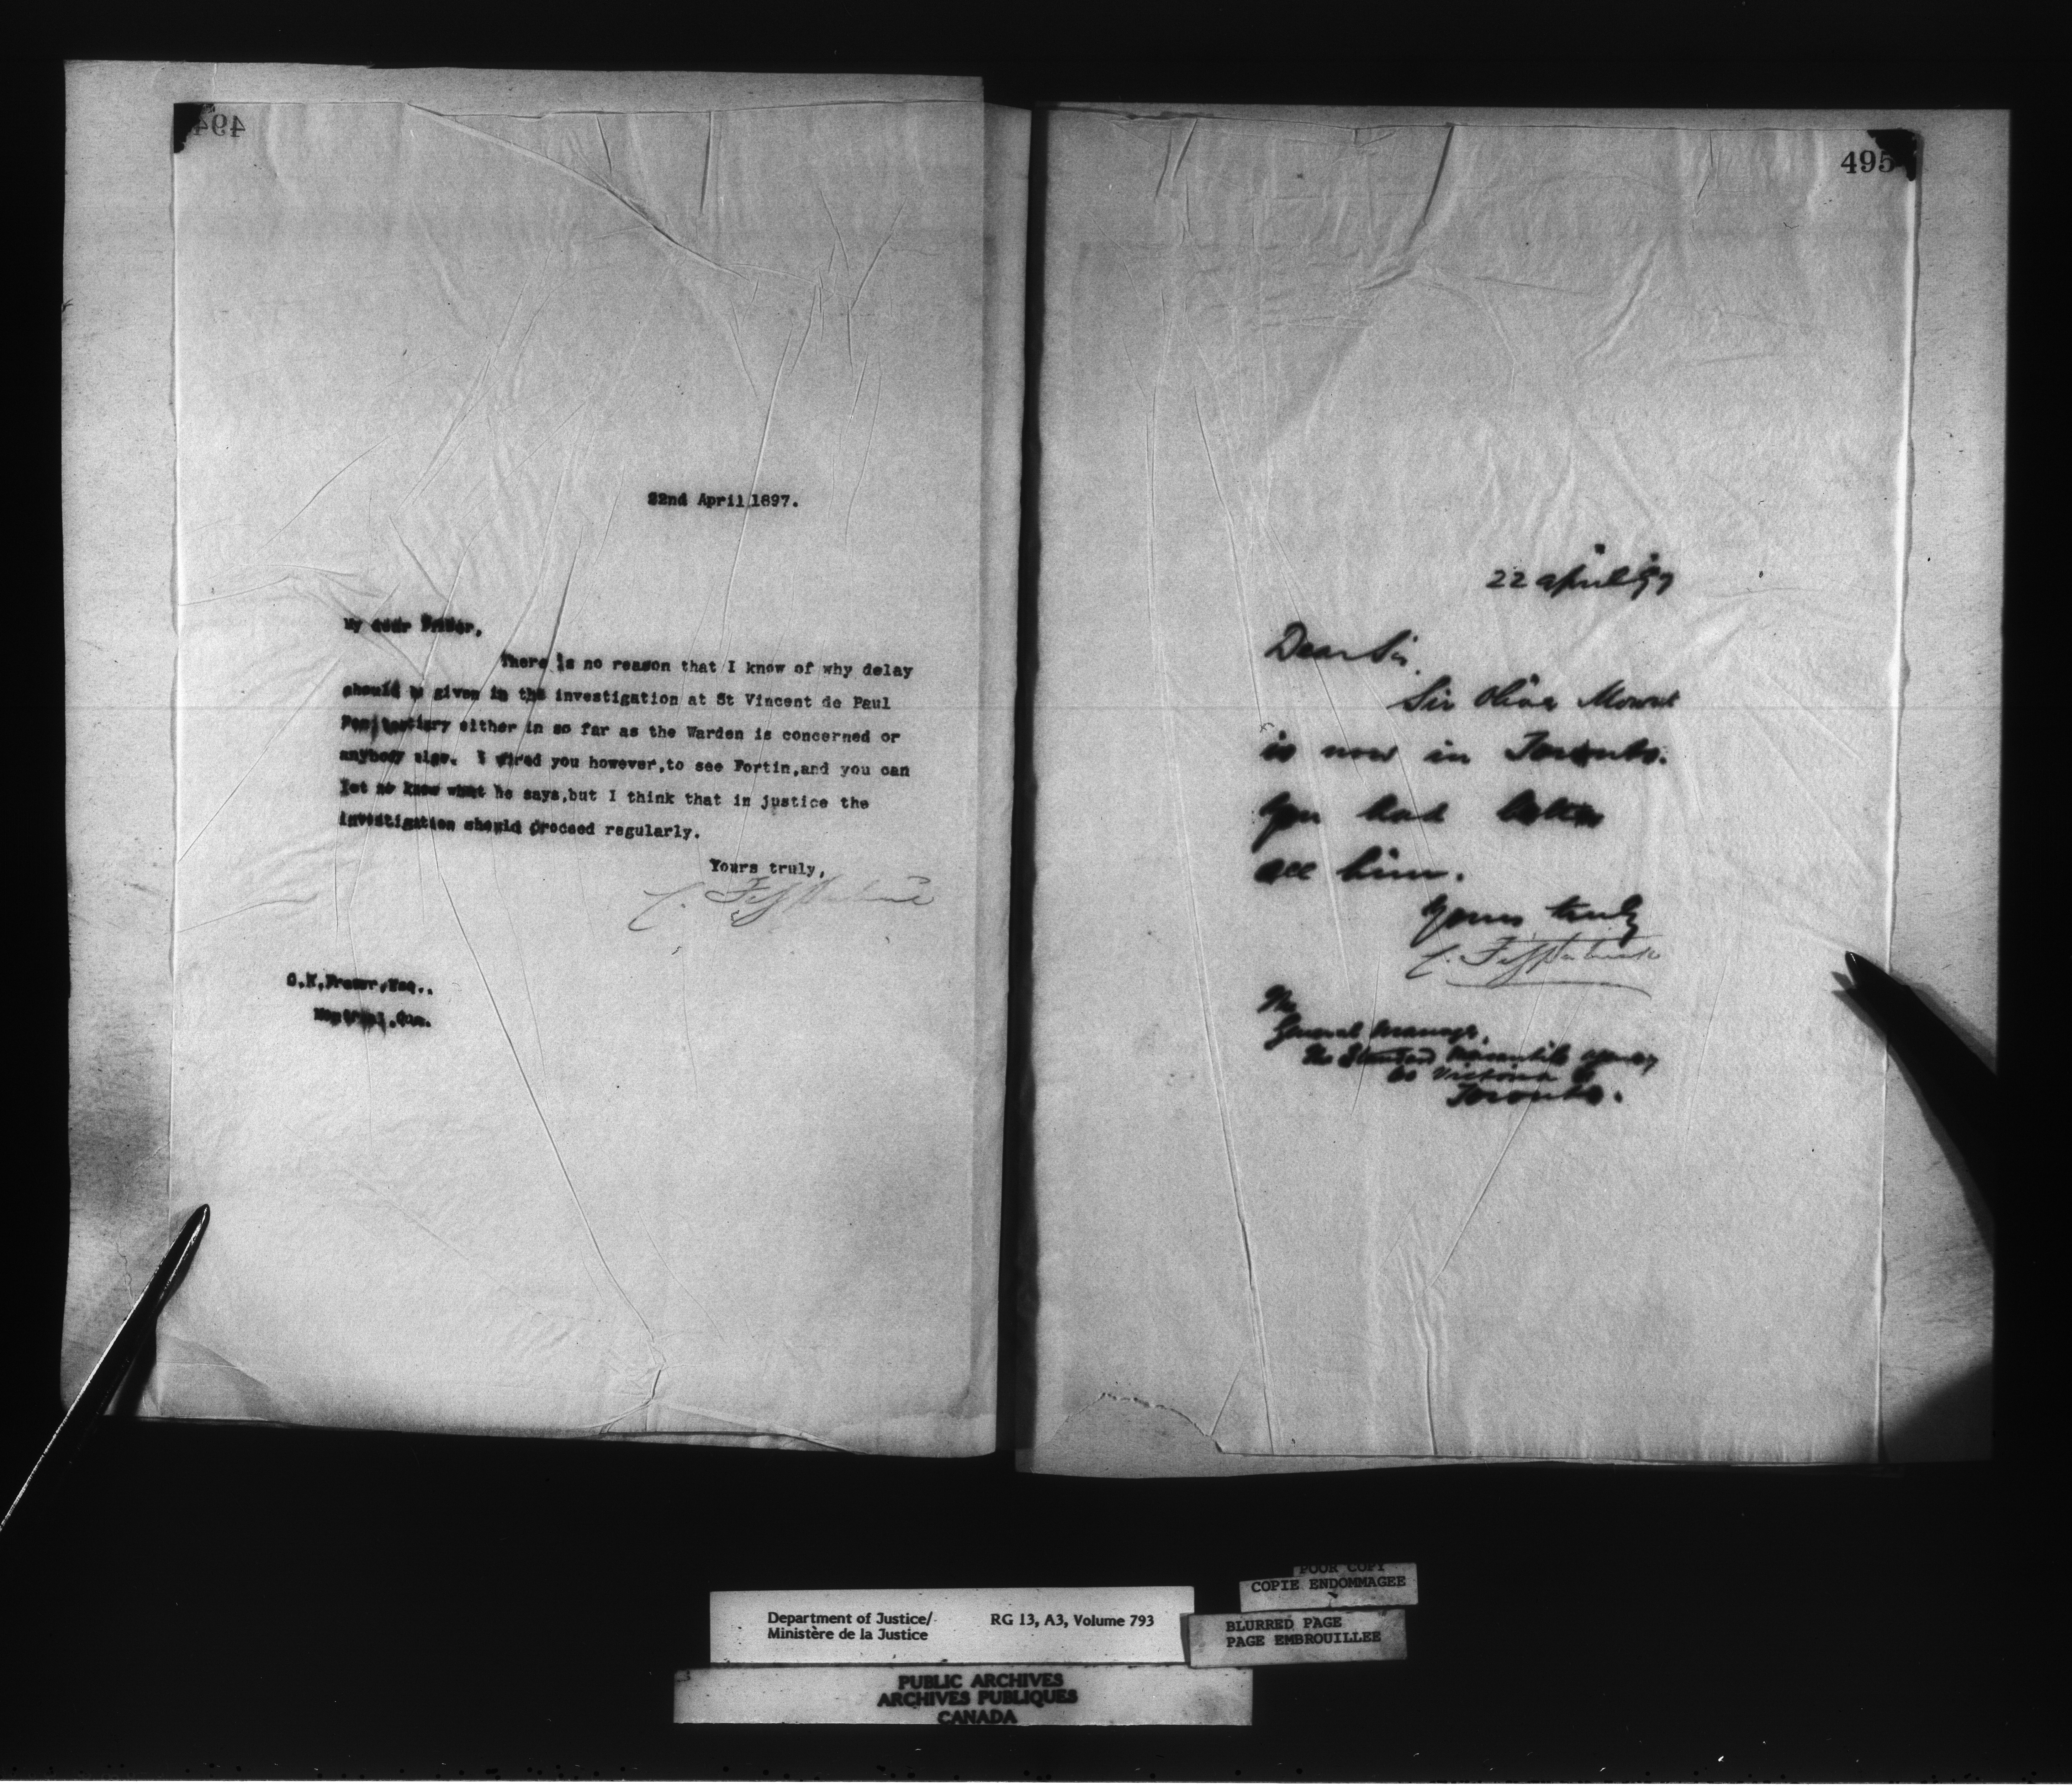 494
22nd April 1897.
My dear Fraser,
There is no reason that I know of why delay
should be given in the investigation at St Vincent de Paul
Penitentiary either in so far as the Warden is concerned or
anybody else. I wired you however,to see Fortin,and you can
let me know what he says,but I think that in justice the
investigation should proceed regularly.
Yours truly,
C. Fitzpatrick
Fraser,Esq..
Montreal,Que.
495
22 April 97
Dear Sir.
Sir Oliver Mowat
is now in Toronto.
You had better
see him.
Yours truly
C. Fitzpatrick
The
General Manager,
The Standard Mercantile Agency
Victoria St
Toronto.
Department of Justice/
Ministère de la Justice
RG 13, A3, Volume 793
POOR COPY
COPIE ENDOMMAGEE
BLURRED PAGE
PAGE EMBROUILLEE
PUBLIC ARCHIVES
ARCHIVES PUBLIQUES
CANADA